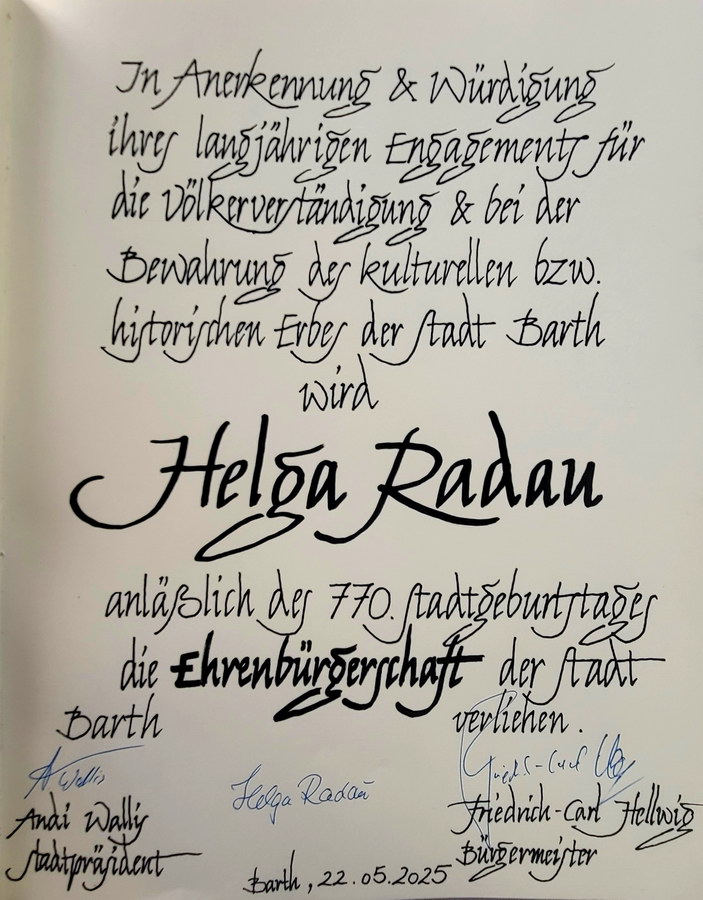 In Anerkennung & Würdigung
ihres langjährigen Engagements für
die Völkerverständigung & bei der
Bewahrung des kulturellen bzw.
historischen Erbes der Stadt Barth
wird
Helga Radau
anläßlich des 770. Stadtgeburtstages
die Ehrenbürgerschaft der Stadt
Barth verliehen.
A Wallis
Helga Radau
Andi Wallis
Stadtpräsident
Friedrich-Carl Hellwig
Bürgermeister
Barth, 22.05.2025